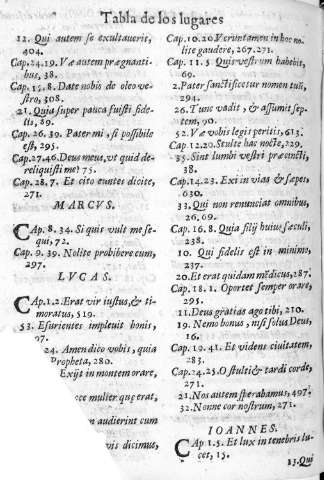 Tabla de los lugares
12. Qui autem se exaltaverit,
404.
Cap. 24.19. Væ autem prægnanti-
bus, 38.
Cap. 15.8. Date nobis de oleo ve-
stro, 308.
21. Quia super pauca fuisti fide-
lis, 89.
Cap. 26. 39. Pater mi, si possibile
est, 295.
Cap. 27.46. Deus meus, vt quid de-
reliquisti me? 75.
Cap. 28. 7. Et cito euntes dicite,
271.
MARCVS.
CAp. 8. 34. Si quis vult me se-
qui, 72.
Cap. 9. 39. Nolite prohibere eum,
297.
LVCAS.
CAp. 1.2. Erat vir iustus, & ti-
moratus, 519.
53. Esurientes impleuit bonis,
97.
24. Amen dico vobis, quia
Propheta, 280.
Exijt in montem orare,
ecce mulier quę erat,
audierint cum
vobis dicimus,
Cap. 10.20. Veruntamen in hoc no-
lite gaudere, 267. 273.
Cap. 11. 5 Quis vestrum habebit,
69.
2. Pater sanctificetur nomen tuū,
294.
26. Tunc vadit, & assumit sep-
tem, 90.
52. Væ vobis legis peritis, 613.
Cap. 12.20. Stulte hac nocte, 229.
35. Sint lumbi vestri præcincti,
38.
Cap. 14.23. Exi in vias & sæpes,
630.
33. Qui non renunciat omnibus,
26. 69.
Cap. 16. 8. Quia filij huius sæculi,
238.
10. Qui fidelis est in minimo,
237.
20. Et erat quidam mēdicus, 287.
Cap. 18. 1. Oportet semper orare,
295.
11. Deus gratias ago tibi, 210.
19. Nemo bonus, nisi solus Deus,
16.
Cap. 19. 41. Et videns ciuitatem,
283.
Cap. 24.25. O stulti & tardi corde,
271.
21. Nos autem sperabamus, 497.
32. Nonne cor nostrum, 271.
IOANNES.
CAp 1.5. Et lux in tenebris lu-
cet, 15.
13. Qui